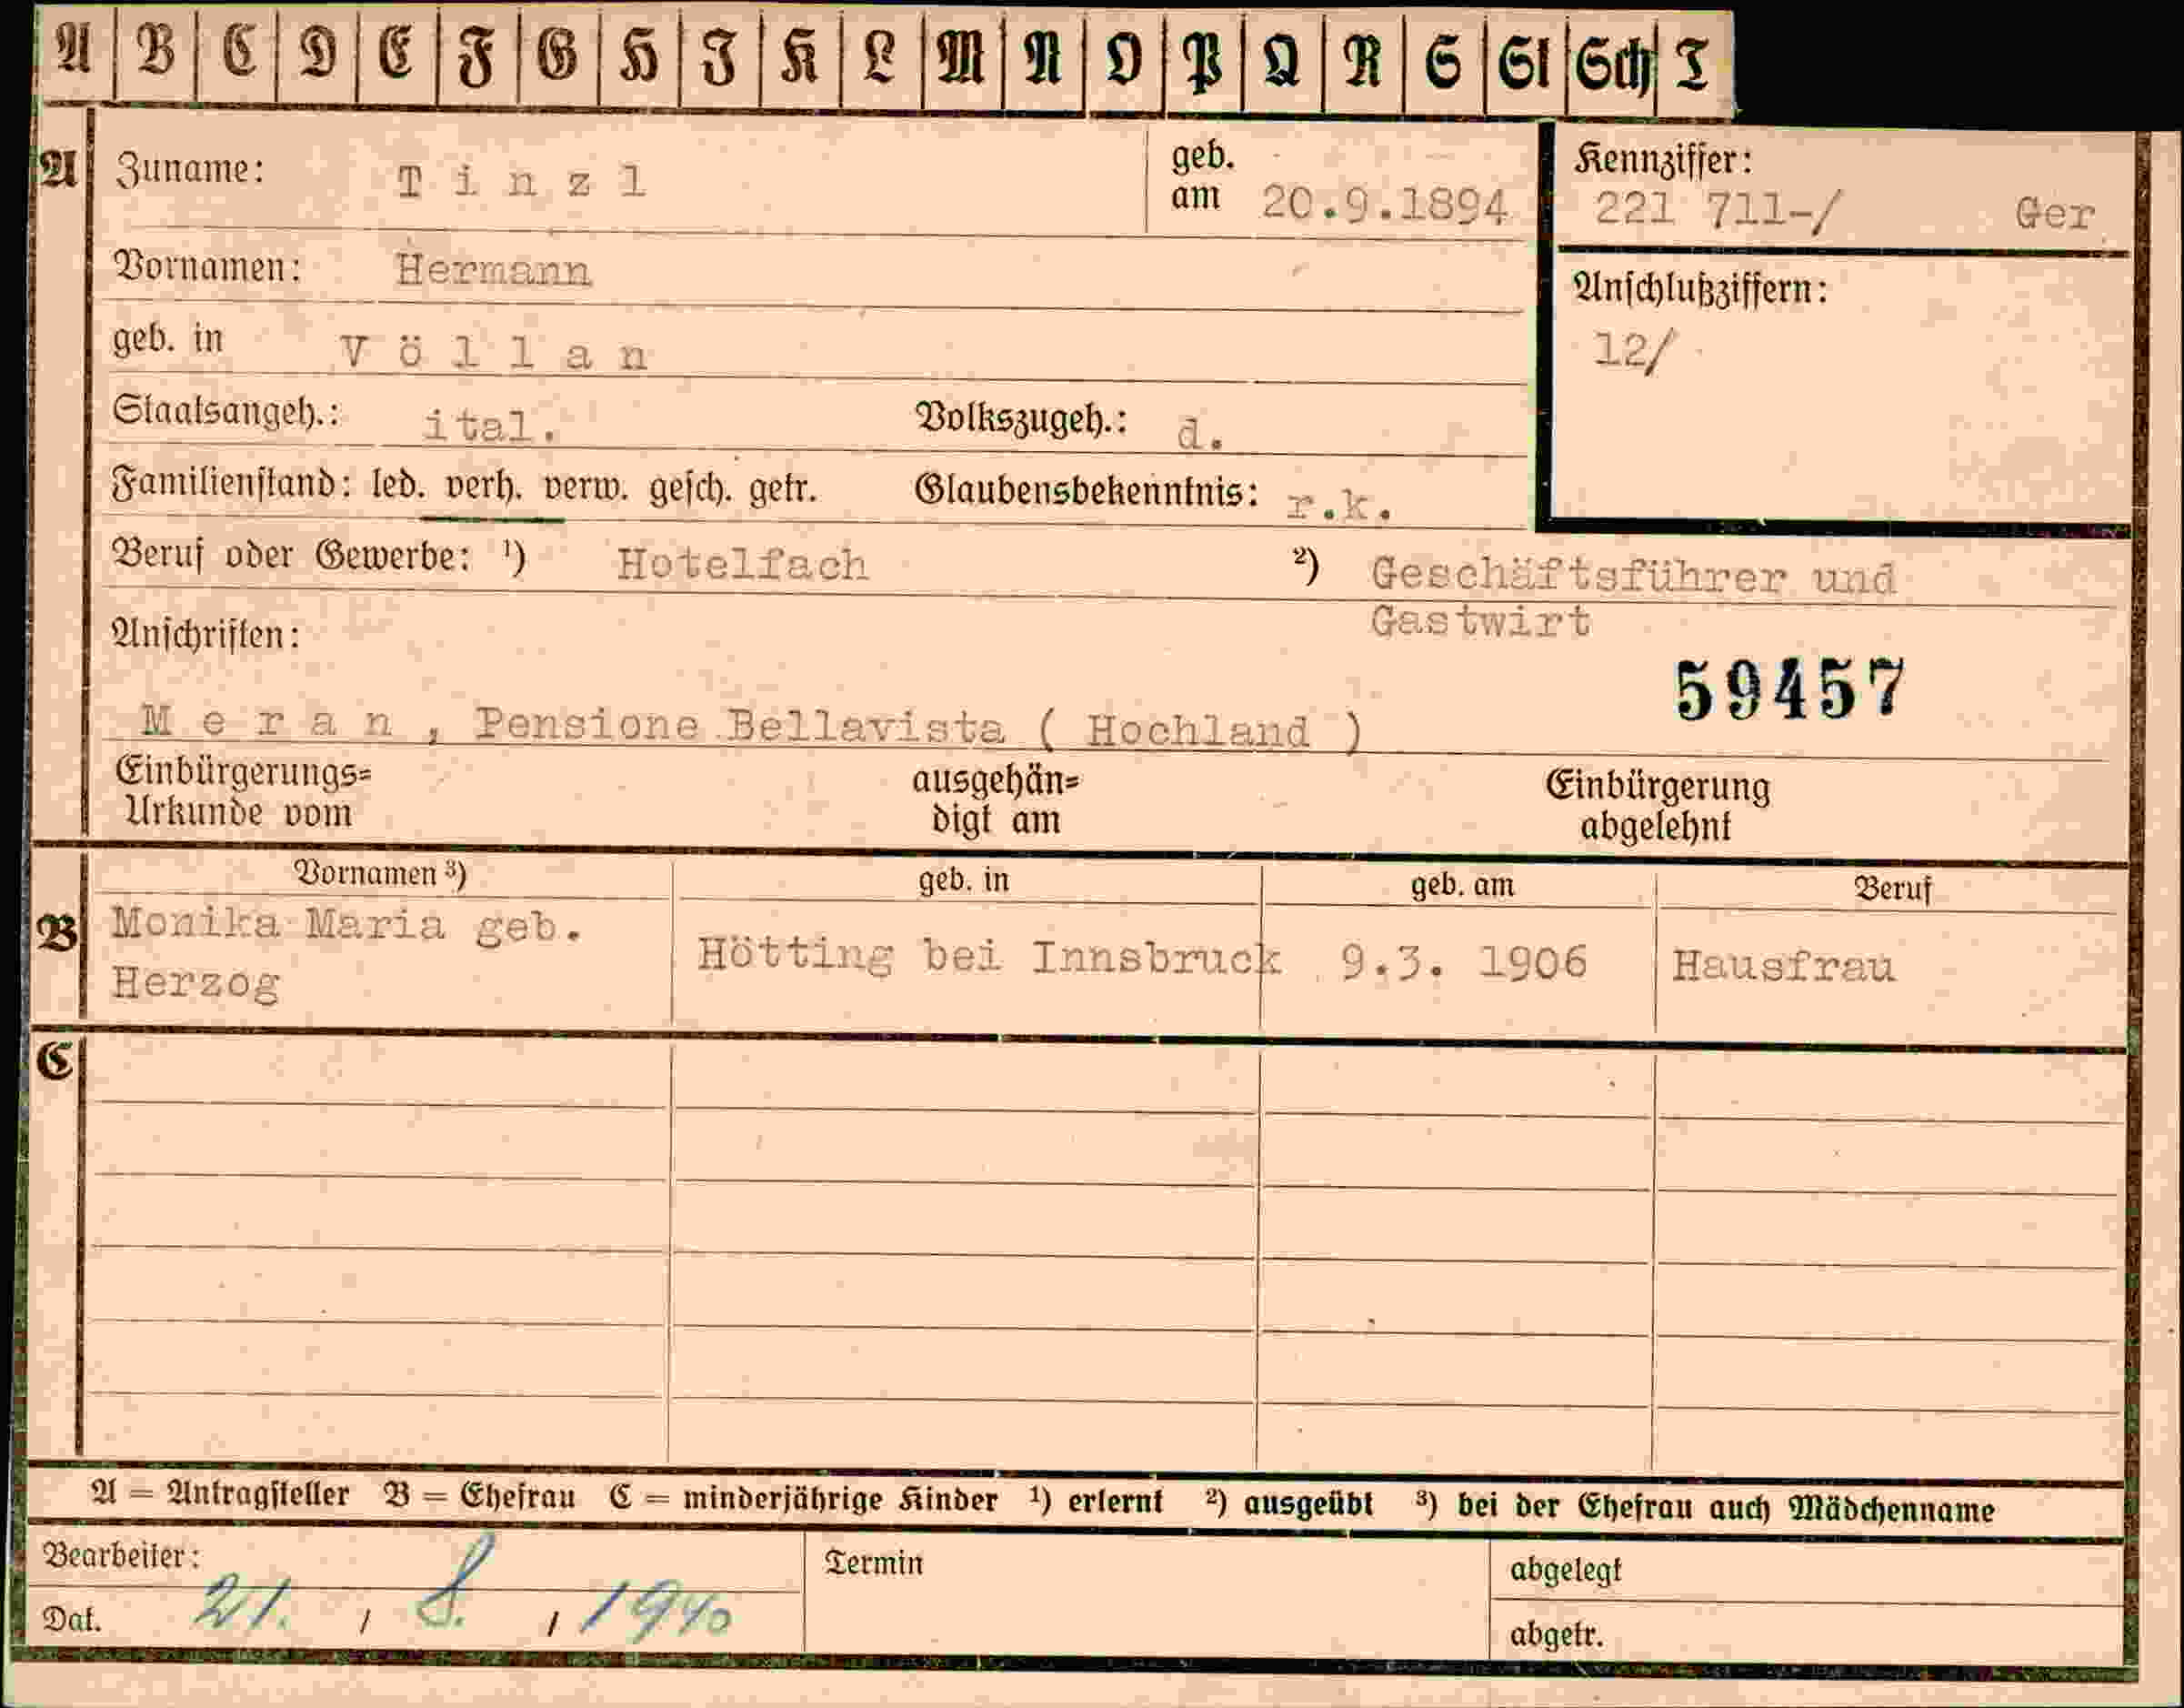 A B C D E F G H I K L M N O P Q R S St Sch T
A Zuname: Tinzl geb. am 20.9.1894 Kennziffer: 221 711-/ Ger
Vornamen: Hermann Anschlußziffern:
geb. in Völlan 12/
Staatsangeh.: ital. Volkszugeh.: d.
Familienstand: led. verh. verw. gesch. getr. Glaubensbekenntnis: r.k.
Beruf oder Gewerbe: ¹) Hotelfach ²) Geschäftsführer und
Gastwirt
Anschriften:
59457
Meran, Pensione Bellavista ( Hochland )
Einbürgerungs= ausgehän= Einbürgerung
Urkunde vom digt am abgelehnt
Vornamen ³) geb. in geb. am Beruf
B Monika Maria geb. Hötting bei Innsbruck 9.3. 1906 Hausfrau
Herzog
C
A = Antragsteller B = Ehefrau C = minderjährige Kinder ¹) erlernt ²) ausgeübt ³) bei der Ehefrau auch Mädchenname
Bearbeiter: Termin abgelegt
Dat. 21. / 8. / 1940 abgetr.